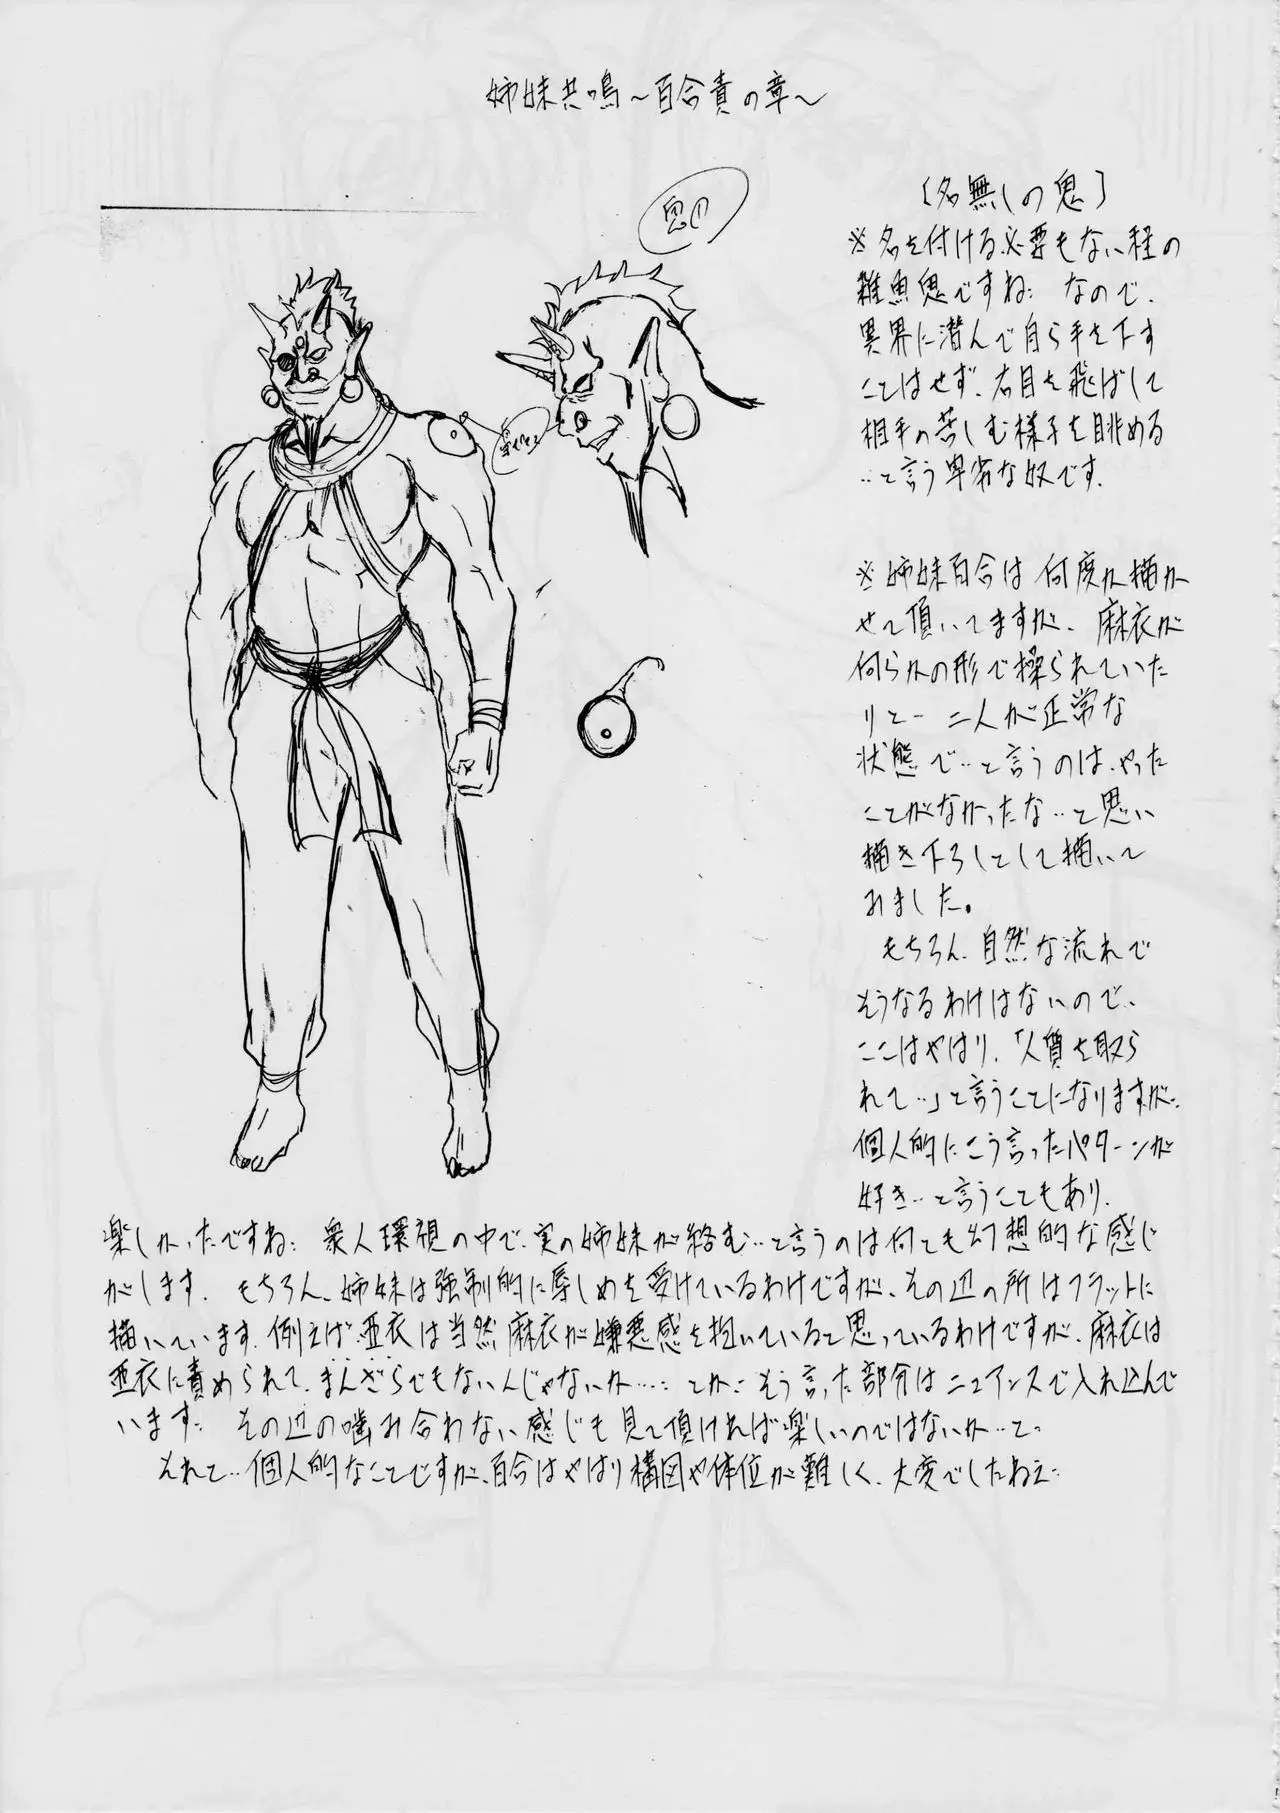 姉妹共鳴〜百合責の章〜
鬼①
【名無しの鬼】
※名を付ける必要もない程の
雑魚鬼ですね… なので、
異界に潜んで自ら手を下す
ことはせず、右目を飛ばして
相手の苦しむ様子を眺める
…と言う卑劣な奴です。
※姉妹百合は何度か描か
せて頂いてますが、麻衣が
何らかの形で操られていた
りと… 二人が正常な
状態で…と言うのは、やった
ことがなかったな…と思い
描き下ろしとして描いて
みました。
もちろん、自然な流れで
そうなるわけはないので、
ここはやはり、「人質を取ら
れて…」と言うことになりますが…
個人的にこう言ったパターンが
好き…と言うこともあり、
楽しかったですね… 衆人環視の中で、実の姉妹が絡む…と言うのは何とも幻想的な感じ
がします。 もちろん、姉妹は強制的に辱しめを受けているわけですが、その辺の所はフラットに
描いています。例えば、亜衣は当然麻衣が嫌悪感を抱いていると思っているわけですが、麻衣は
亜衣に責められて、まんざらでもないんじゃないか…… とか… そう言った部分はニュアンスで入れ込んで
います… その辺の噛み合わない感じも見て頂ければ楽しいのではないか…と…
それと… 個人的なことですが、百合はやはり構図や体位が難しく、大変でしたねェ…